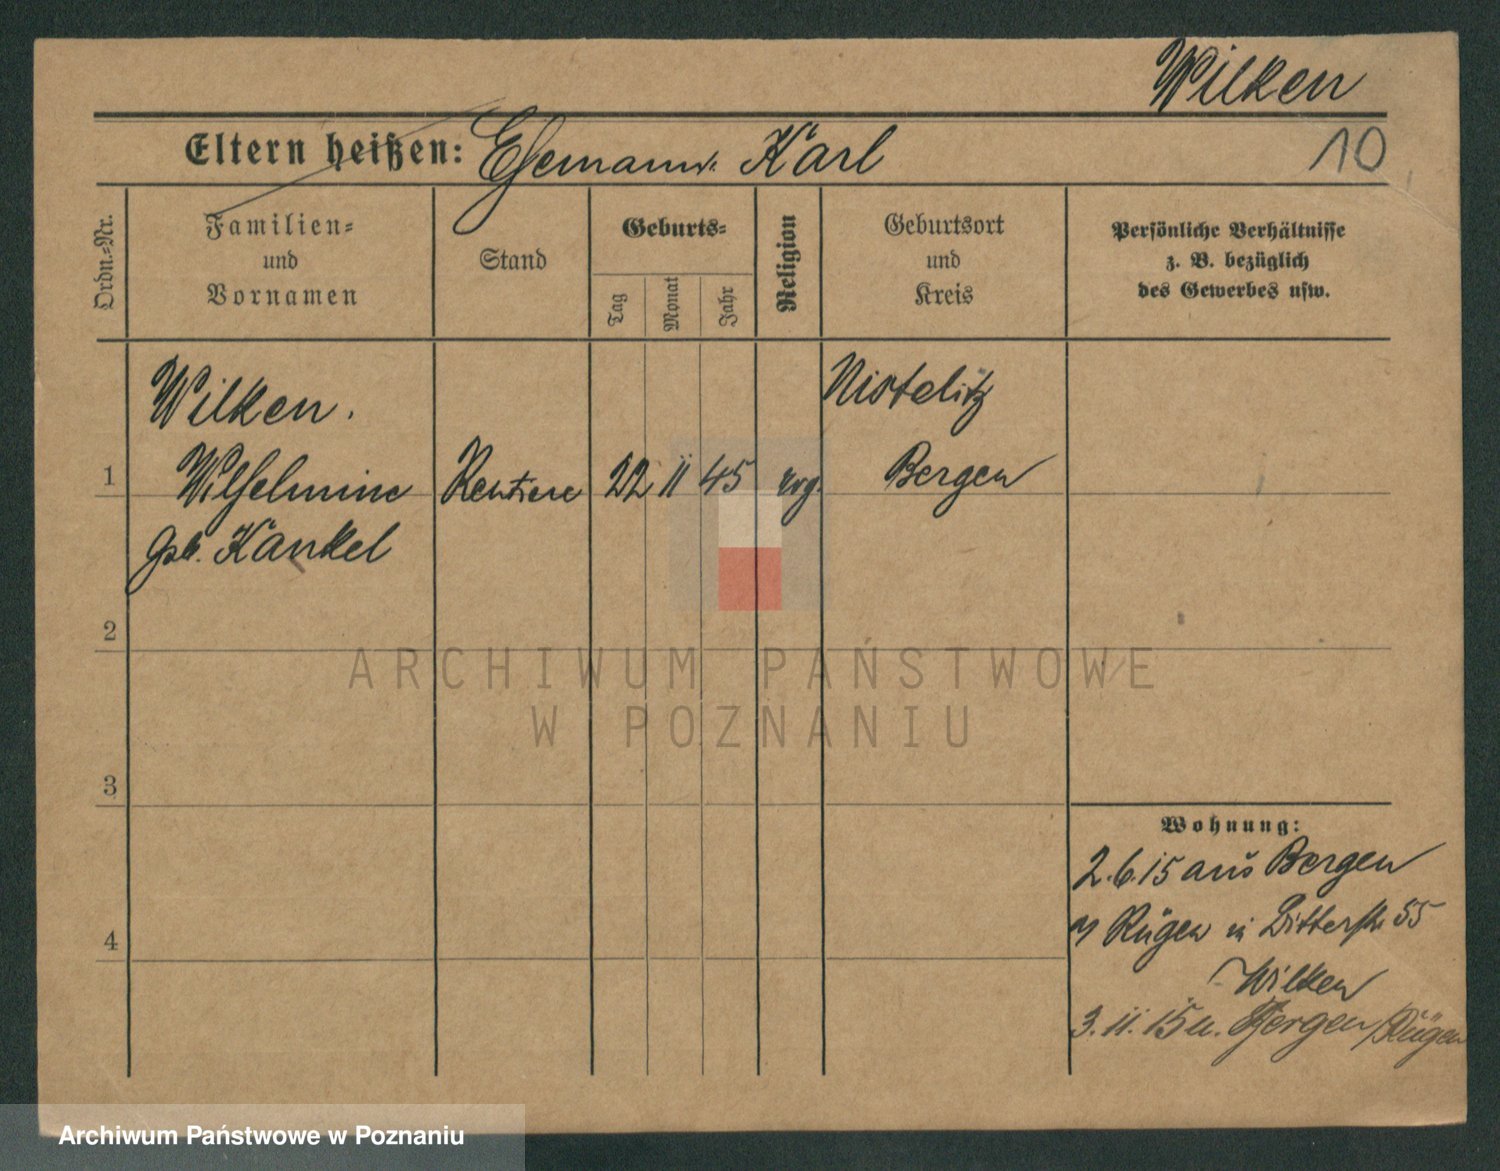 Wilken
Eltern heißen: Ehemann: Karl
10
Ordn.-Nr.
Familien-
und
Vornamen
Stand
Geburts-
Tag
Monat
Jahr
Religion
Geburtsort
und
Kreis
Persönliche Verhältnisse
z. B. bezüglich
des Gewerbes usw.
Wilken.
Nistelitz
1
Wilhelmine Rentiere 22 11 45 evg. Bergen
geb. Kankel
2
ARCHIWUM PAŃSTWOWE
W POZNANIU
3
Wohnung:
2.6.15 aus Bergen
Rügen Ritterstr. 55
Wilken
3.11.15 n. Bergen/Rügen
4
Archiwum Państwowe w Poznaniu